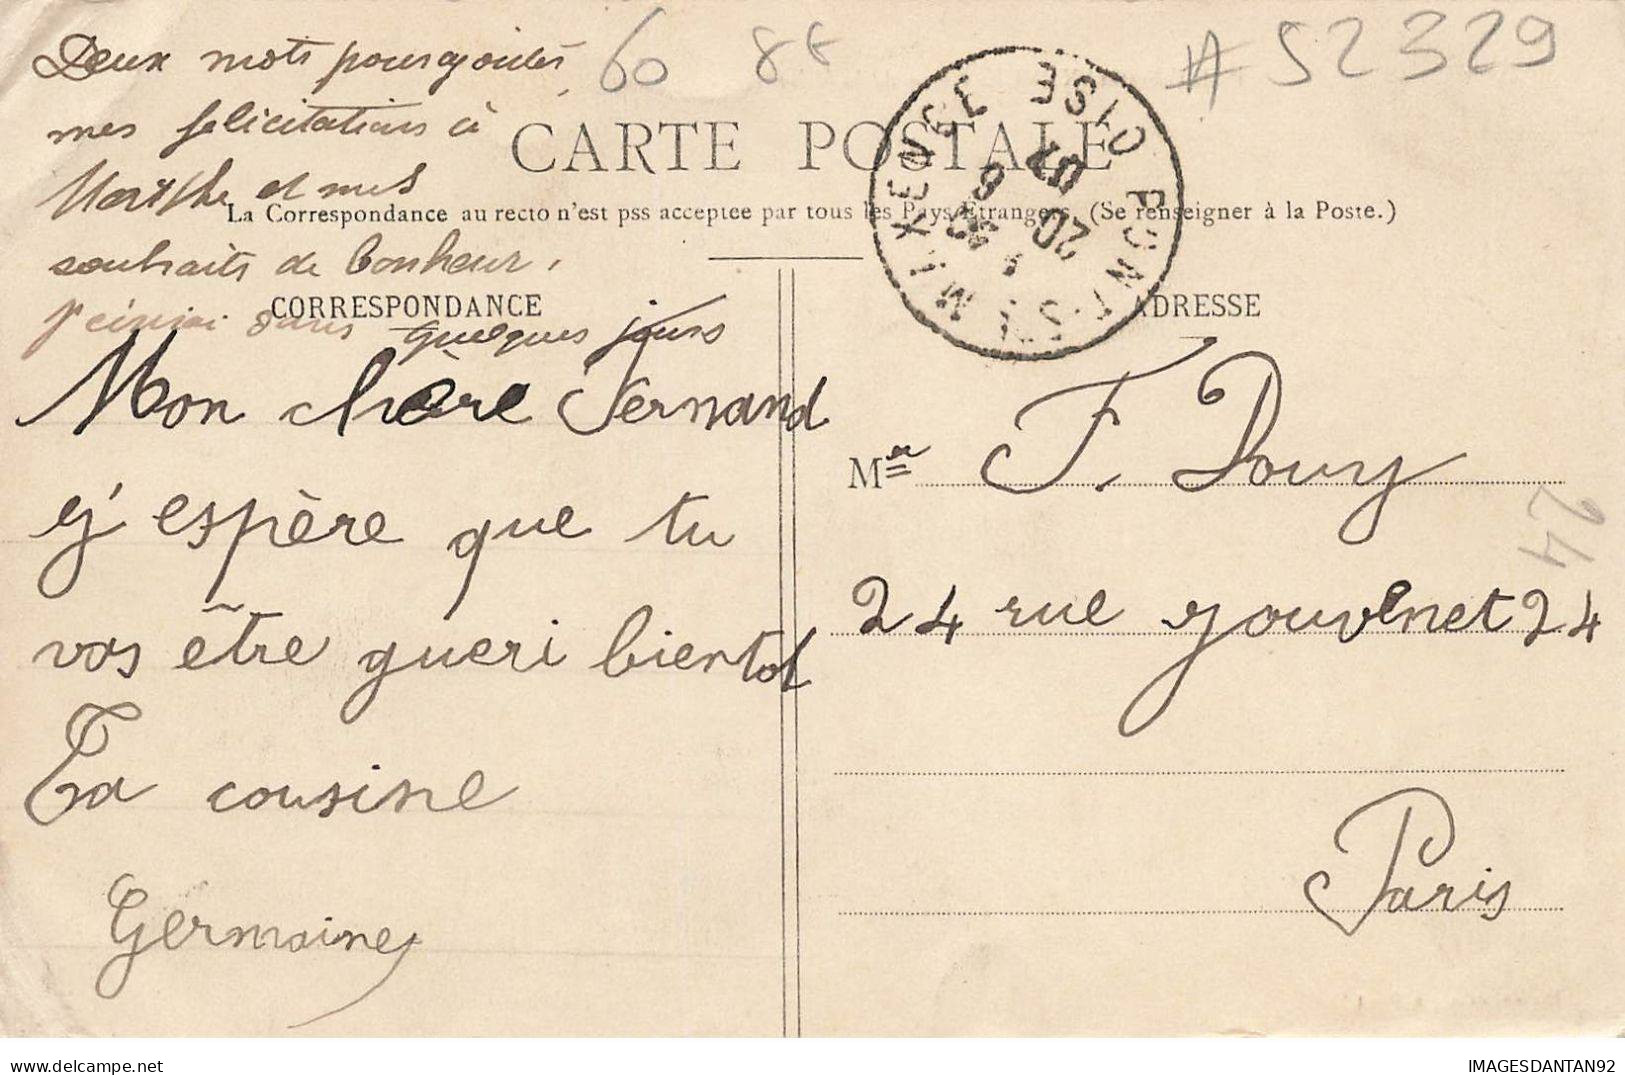 Deux mots pour y joindre
mes felicitations à
Marthe et mes
souhaits de bonheur.
J'écrirai dans quelques jours
60 8E
# 52329
CARTE POSTALE
La Correspondance au recto n'est pss acceptee par tous les Pays Etrangers. (Se renseigner à la Poste.)
PONT-STE MAXENCE OISE
6
20
07
CORRESPONDANCE
Mon chère Fernand
j'espère que tu
vas être gueri bientot
Ta cousine
Germaine
ADRESSE
M F. Douy
24 rue Jouvenet 24
Paris
24
IMAGESDANTAN92